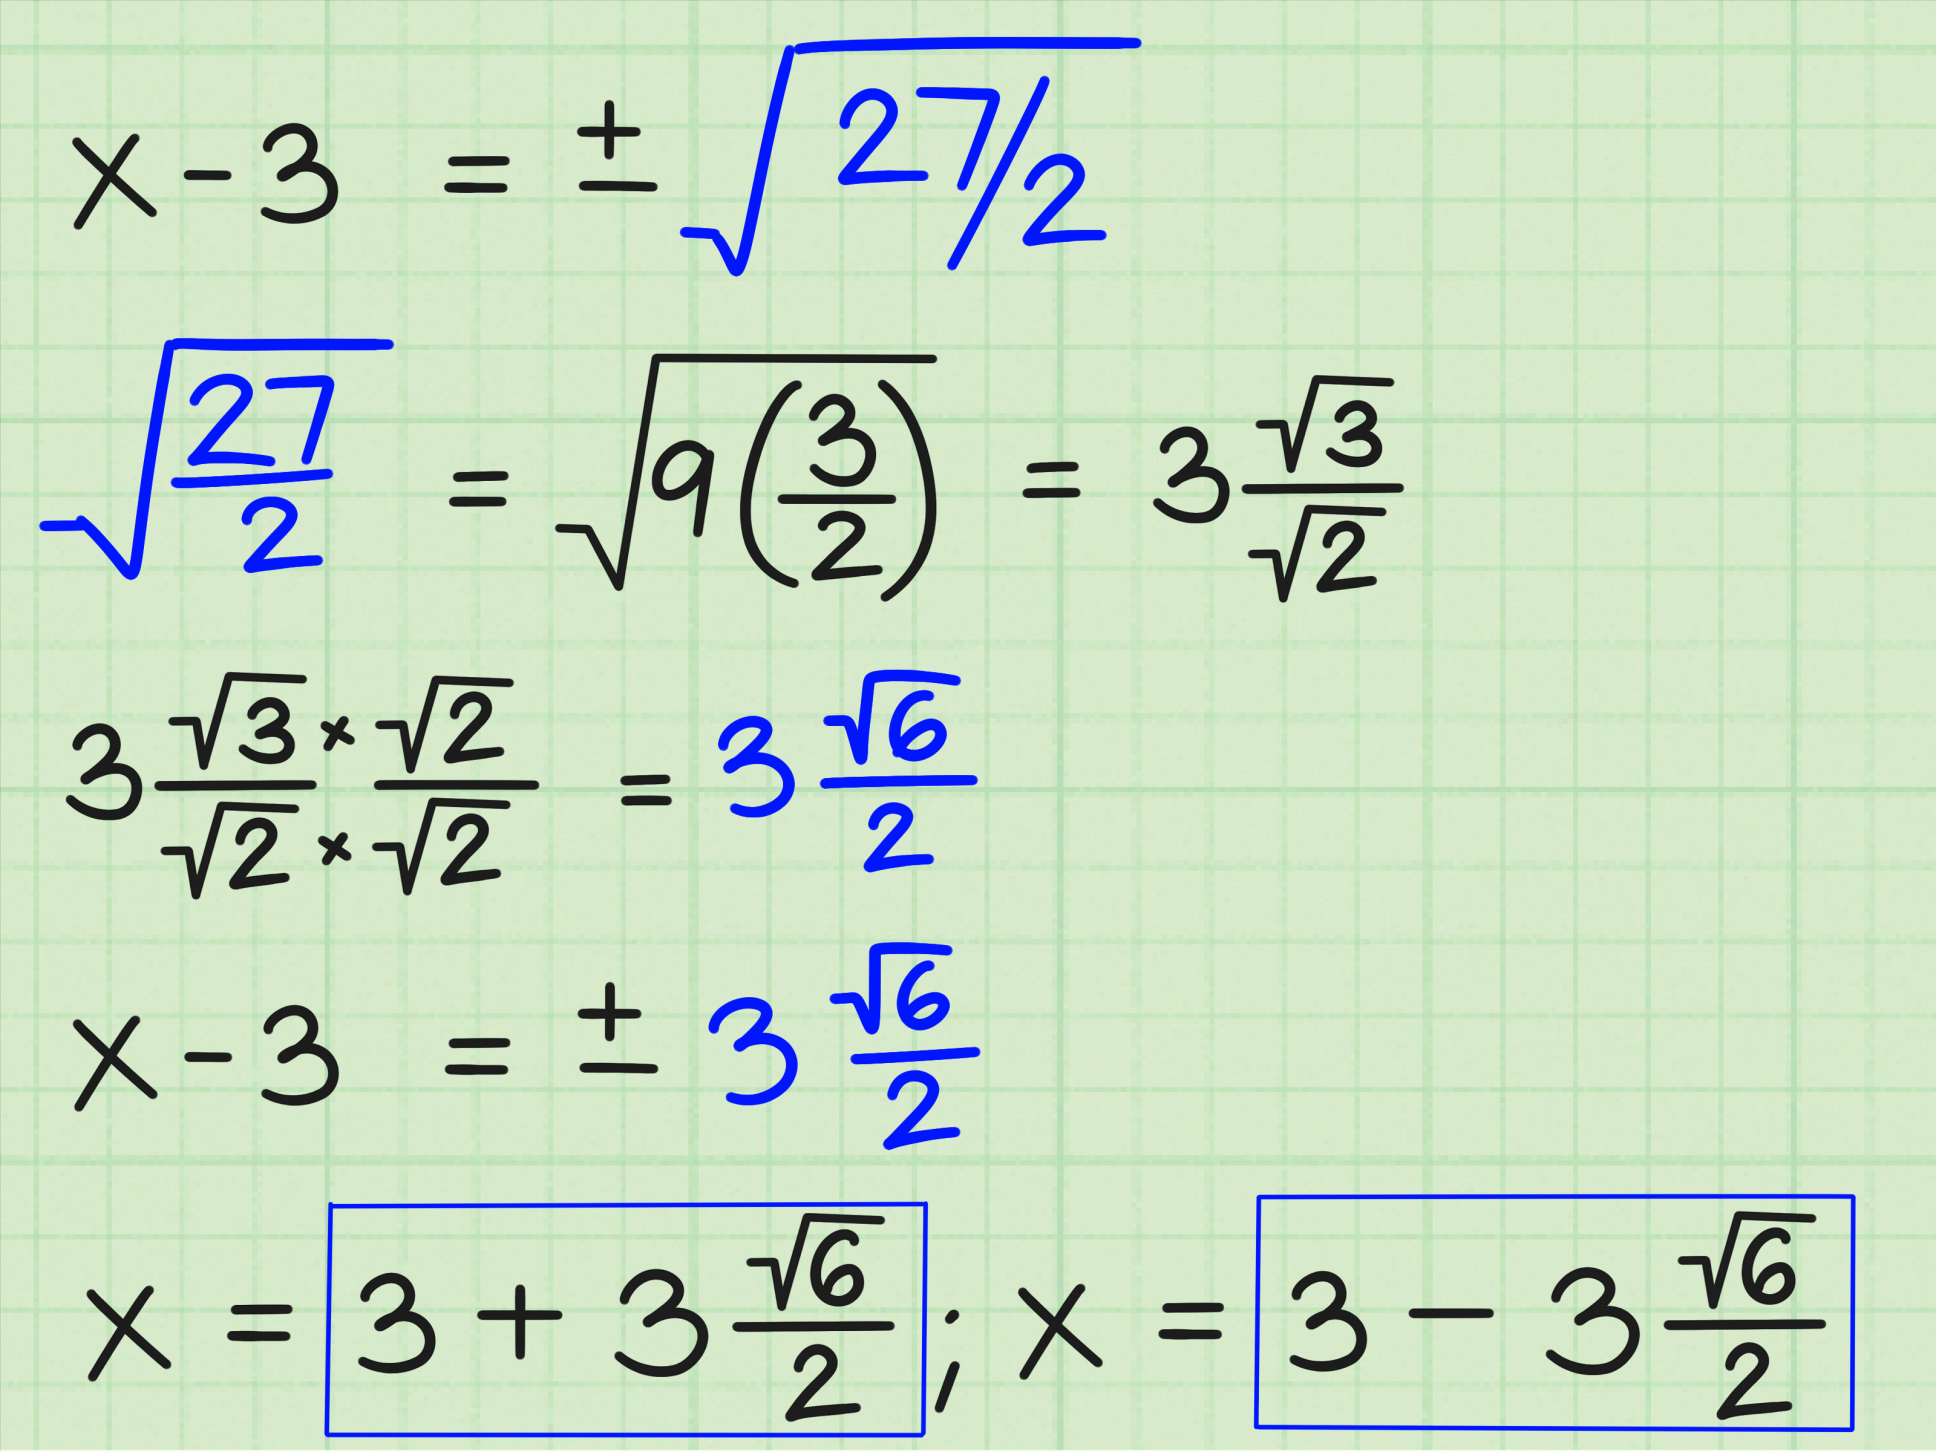 x - 3 = ± √(27/2)
√(27/2) = √(9(3/2)) = 3 √3/√2
3 (√3 × √2)/(√2 × √2) = 3 √6/2
x - 3 = ± 3 √6/2
x = 3 + 3 √6/2 ; x = 3 - 3 √6/2